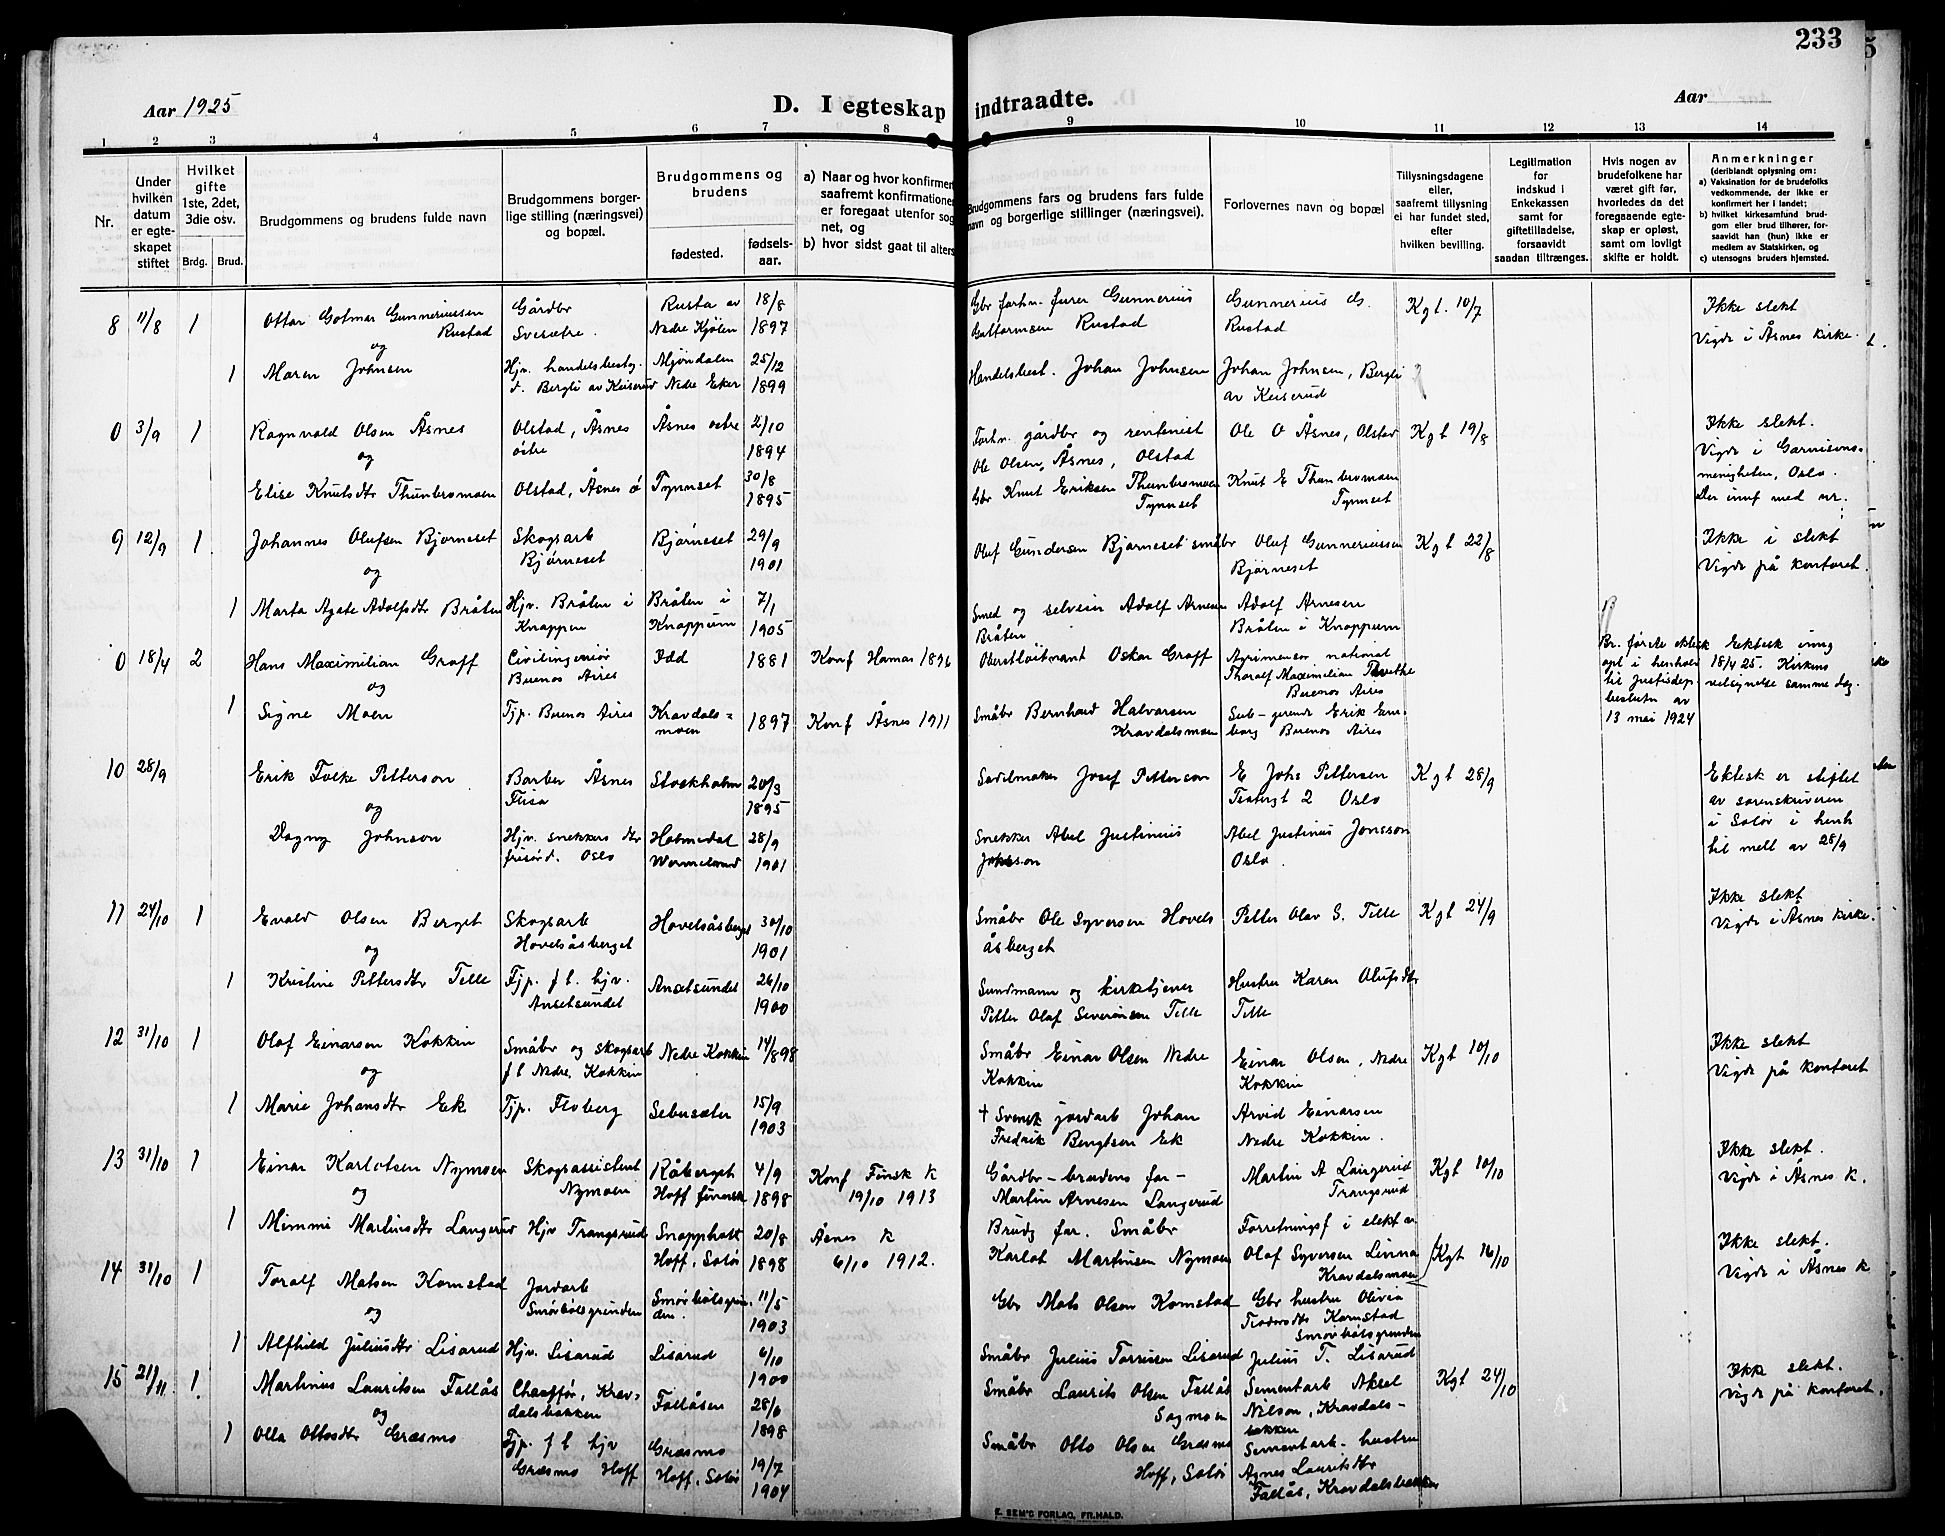 233
Aar 1925
D. I egteskap indtraadte.
Aar
1 2 3 4 5 6 7 8 9 10 11 12 13 14
Nr.
Under hvilken datum er egteskapet stiftet
Hvilket gifte 1ste, 2det, 3die osv.
Brdg. Brud.
Brudgommens og brudens fulde navn
Brudgommens borgerlige stilling (næringsvei) og bopæl.
Brudgommens og brudens
fødested.
fødselsaar.
a) Naar og hvor konfirmer
saafremt konfirmationen
er foregaat utenfor sog
net, og
b) hvor sidst gaat til alters
Brudgommens fars og brudens fars fulde navn og borgerlige stillinger (næringsvei).
Forlovernes navn og bopæl
Tillysningsdagene eller, saafremt tillysning ei har fundet sted, efter hvilken bevilling.
Legitimation for indskud i Enkekassen samt for giftetilladelse, forsaavidt saadan tiltrænges.
Hvis nogen av brudefolkene har været gift før, hvorledes da det foregaaende egteskap er opløst, samt om lovligt skifte er holdt.
Anmerkninger
(deriblandt oplysning om:
a) Vaksination for de brudefolks vedkommende, der ikke er konfirmert her i landet;
b) hvilket kirkesamfund brudgom eller brud tilhører, forsaavidt han (hun) ikke er medlem av Statskirken, og
c) utensogns bruders hjemsted.
8 11/8 1 Ottar Gotmar Gunneriussen Rustad Gårdbr Svesætre. Rusta av Nedre Kjølen 18/8 1897 Gbr forhv. furer Gunnerius Rustad Gunnerius G. Rustad Kgt. 10/7 Ikke slekt Vigde i Åsnes kirke.
og
1 Maren Johnsen Hjv. handelsbesty. Bergli av Keiserud Mjøndalen Nedre Eker 25/12 1899 Handelsbest. Johan Johnsen Johan Johnsen, Bergli av Keiserud
0 3/9 1 Ragnvald Olsen Åsnes Olstad, Åsnes østre Åsnes østre 2/10 1894 Forhv. gårdbr og rentenist Ole Olsen, Åsnes, Olstad Ole O Åsnes, Olstad Kgt 19/8 Ikke slekt. Vigde i Garnisonsmenigheten, Oslo. Der innf med nr.
og
Elise Knutsdtr Thunbromoen Olstad, Åsnes ø Tynnset 30/8 1895 Gbr Knut Eriksen Thunbromoen Tynnset Knut E Thunbromoen Tynnset
9 12/9 1 Johannes Olufsen Bjørneset Skogsarb Bjørneset Bjørneset 29/9 1901 Oluf Gundersen Bjørneset småbr Oluf Gunneriussen Bjørneset Kgt 22/8 Ikke i slekt Vigde på kontoret.
og
1 Marta Agate Adolfsdtr Bråten Hjv. Bråten i Knappen Bråten i Knappum 7/1 1905 Smed og selveier Adolf Arnesen Bråten Adolf Arnesen Bråten i Knappum
0 18/4 2 Hans Maximilian Graff Civilingeniør Buenos Aires Idd 1881 Konf Hamar 1896 Oberstløitnant Oskar Graff Agrimensor national Thoralf Maximilian Buenos Aires Br. første ektesk opl i henhold til Justisdep. beslutn av 13 mai 1924 Ektesk inng 18/4 25. Kirkens velsignelse samme dag.
og
1 Signe Moen Tjp. Buenos Aires Kravdalsmoen 1897 Konf Åsnes 1911 Småbr Bernhard Halvorsen Kravdalsmoen Erik Buenos Aires
10 28/9 Erik Folke Petterson Barber Åsnes Flisa Stockholm 20/3 1895 Sadelmaker Josef Petterson E Johs Pettersen Teatergt 2 Oslo Kgt 28/9 Ektesk er stiftet av sorenskriveren i Solør i henh til meld av 28/9
og
Dagny Johnson Hjv. snekkers dtr frisørd. Oslo Holmedal Wermeland 28/9 1901 Snekker Abel Justinius Jonsson Abel Justinius Jonsson Oslo.
11 24/10 1 Evald Olsen Berget Skogsarb Hovelsåsberget Hovelsåsberget 30/10 1901 Småbr Ole Syversen Hovelsåsberget Petter Olav S. Telle Kgt 24/9 Ikke slekt Vigde i Åsnes kirke.
og
1 Kristine Pettersdtr Telle Tjp. f l. hjv. Ansetsundet Ansetsundet 26/10 1900 Sundmann og kirketjener Petter Olaf Severinsen Telle Hustru Karen Olufsdtr Telle
12 31/10 1 Olaf Einarsen Kokkin Småbr og skogsarb f l Nedre Kokkin Nedre Kokkin 14/8 98 Småbr Einar Olsen Nedre Kokkin Einar Olsen, Nedre Kokkin Kgt 10/10 Ikke slekt Vigde på kontoret
og
1 Marie Johansdtr Ek Tjp. Floberg Sebusæter 15/9 1903 + Svensk jordarb Johan Fredrik Bengtsen Ek Arvid Einarsen Nedre Kokkin.
13 31/10 1 Einar Karlotsen Nymoen Skogsassistent Nymoen Råberget Hoff finnesk 4/9 1898 Konf Finsk k 19/10 1913 Gårdbr – brudens far – Martin Arnesen Langerud Martin A Langerud Trangsrud Kgt 10/10 Ikke slekt. Vigde i Åsnes k.
og
1 Mimmi Martinsdtr Langerud Hjv Trangsrud Snapphott Hoff, Solør 20/8 1898 Åsnes k 6/10 1912. Brudg far. Småbr Karlot Martinsen Nymoen Forretningsf i elekt v Olaf Syversen Linna Kravdalsmoen
14 31/10 1 Toralf Matsen Komstad Jordarb Smørbølsgrinden Smørbølsgrinden. 11/5 1903 Gbr Mats Olsen Komstad Gbr hustru Olivia Teodorsdtr Komstad Smørbølsgrinden Kgt 16/10 Ikke slekt. Vigde i Åsnes k
og
1 Alfhild Juliusdtr Lisarud Hjv. Lisarud Lisarud 6/10 1900 Småbr Julius Torrissen Lisarud Julius T. Lisarud
15 21/11. 1 Martinus Lauritsen Fallås Chauffør, Kravdalsbakken Fallåsen 28/6 1898 Småbr Laurits Olsen Fallås Sagmoen Sementarb Aksel Nilson, Kravdalsbakken Kgt 24/10 Ikke slekt. Vigde på kontoret.
og
1 Olla Ottosdtr Græsmo Tjp. f l hjv Græsmo Hoff Græsmo Hoff, Solør 19/7 1904 Småbr Otto Olsen Græsmo Hoff, Solør Sementarb. hustru Agnes Lauritsdtr Fallås, Kravdalsbakken
E. SEM'S FORLAG, FR.HALD.